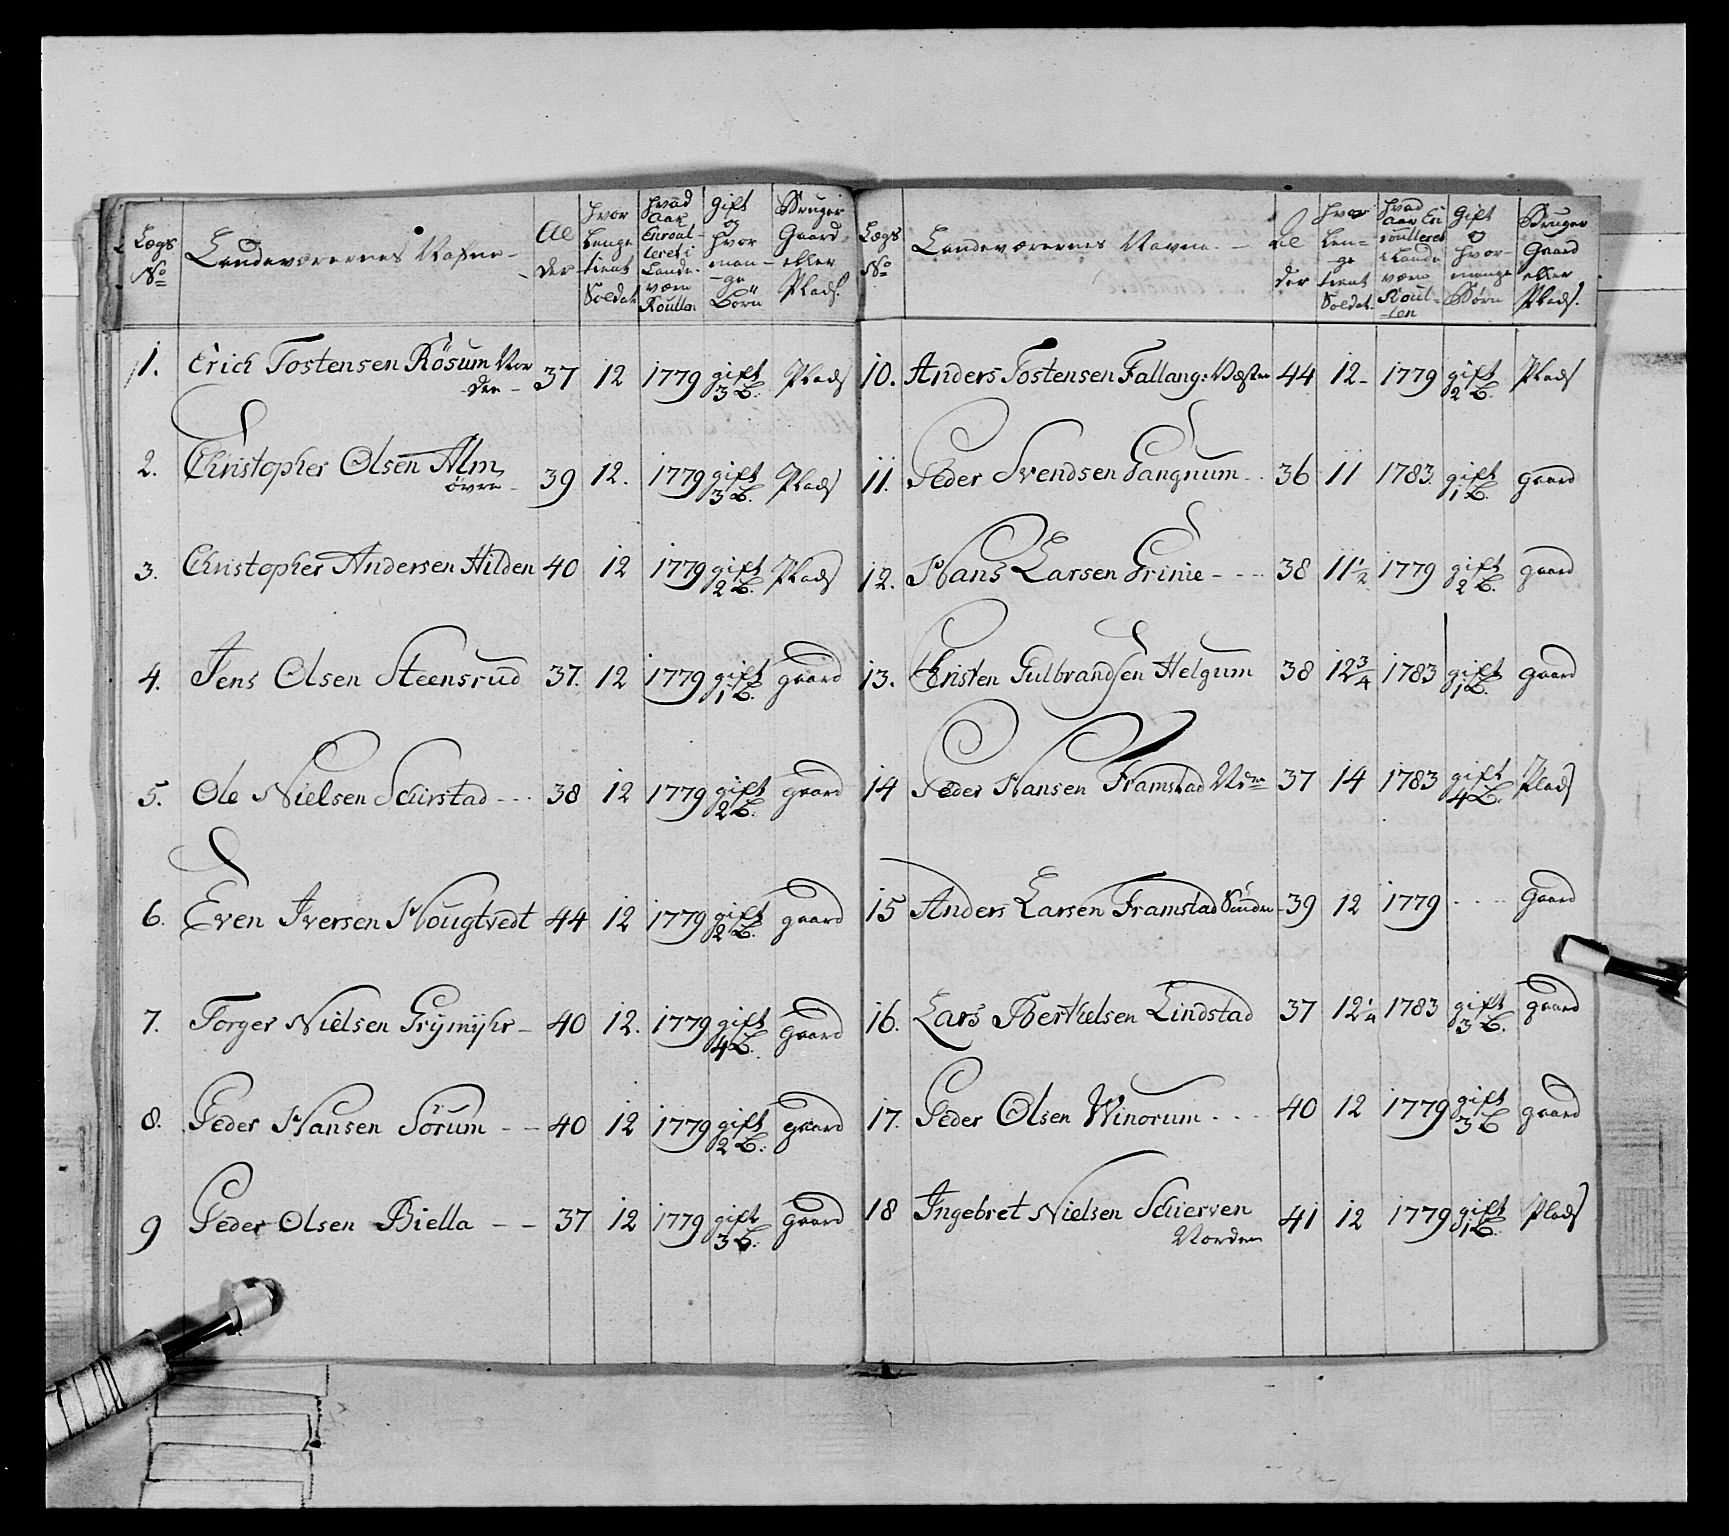 Lægs No | Landeværernes Nafne | Al der | hvor lenge tient Soldat | hvad Aar Enroul-leret i Lande-værn Roullen | gift og hvor man-ge Börn | Bruger Gaard eller Plads.
1. Erich Tostensen Rösum Nor 37 12 1779 gift Plads
der 3 B.
2. Christopher Olsen Alm 39 12. 1779 gift Plads
övre 3 B.
3. Christopher Andersen Hilden 40 12 1779 gift Plads
2 B.
4. Jens Olsen Steensrud 37. 12 1779 gift gaard
1 B.
5. Ole Nielsen Schirstad 38 12 1779 gift gaard
2 B.
6. Even Iversen Hougtvedt 44 12 1779 gift gaard
2 B.
7. Torger Nielsen Grÿmÿhr 40 12. 1779 gift gaard
4 B.
8. Peder Hansen Sörum 40 12 1779 gift gaard
2 B.
9 Peder Olsen Biella 37 12 1779 gift gaard
3 B.
Lægs No | Landeværernes Navne | Al der | hvor len-ge tient Soldat | hvad Aar En roulleret i Lande værn Roul-len | Gift og hvor-mange Börn | Bruger Gaard eller Plads.
10. Anders Tostensen Fallang: Væstre 44 12 1779 gift Plads
2 B.
11. Peder Svendsen Gangnum 36 11 1783. gift gaard
1 B.
12. Hans Larsen Grinie 38 11 1/2 1779 gift gaard
2 B.
13. Christen Gulbrandsen Helgum 38 12 3/4 1783 gift gaard
1 B.
14 Peder Hansen Framstad 37 14 1783 gift Plads
4 B.
15 Anders Larsen Framstad Söndre 39 12 1779 Gaard
16. Lars Berthelsen Lindstad 37 12 1/4 1783 gift gaard
3 B.
17. Peder Olsen Winorum 40 12 1779 gift gaard
3 B
18 Ingebret Nielsen Schierven 41 12 1779 gift Plads
Nordre 1 B.